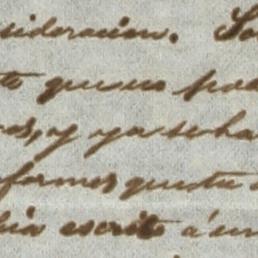 sideracion. 
te que no pod
os, y ya se ha
formes que tu
bia escrito á un